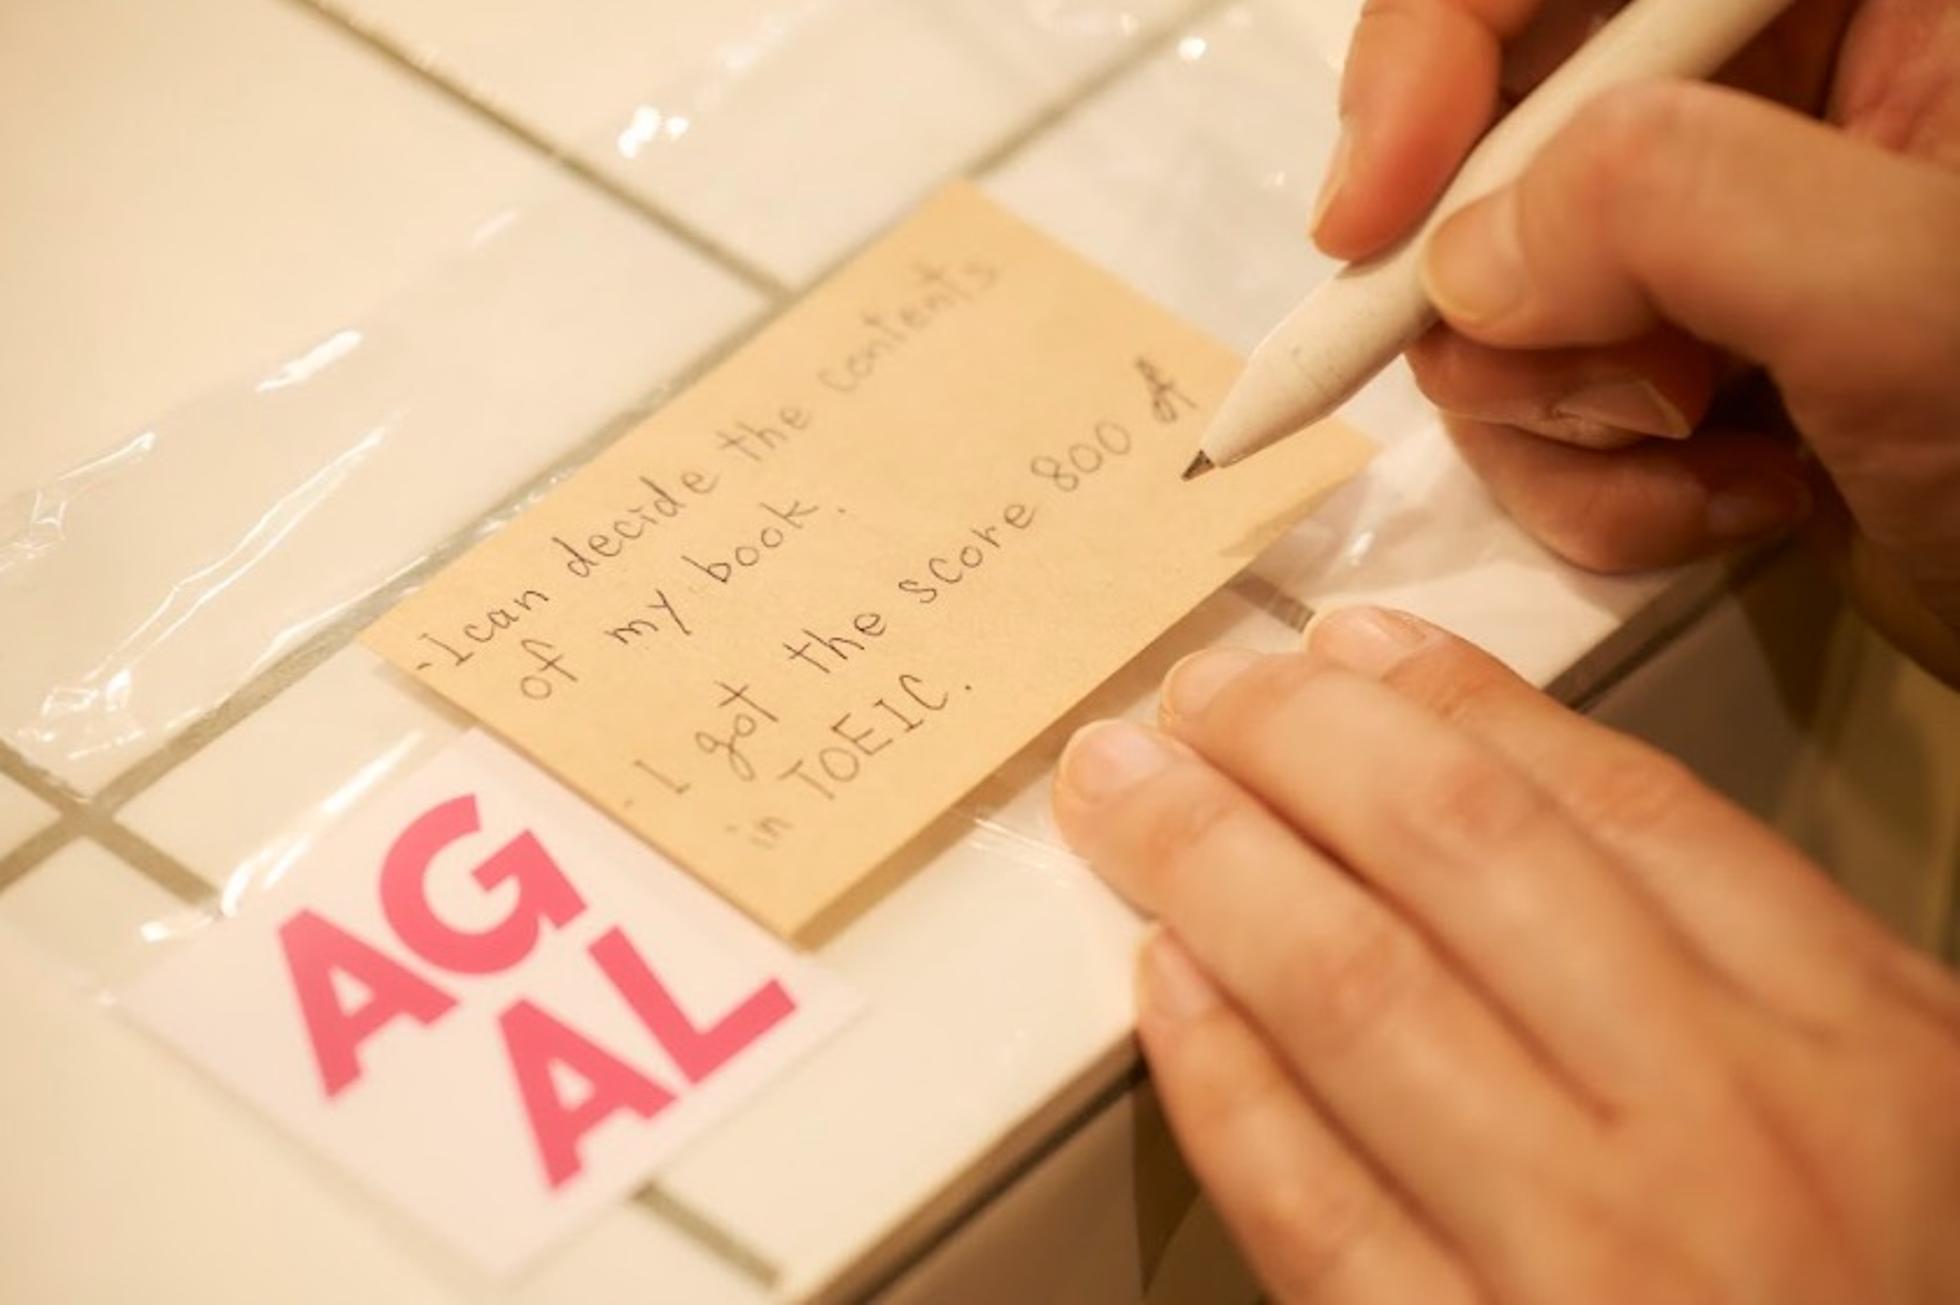 - I can decide the contents
of my book.
- I got the score 800
in TOEIC.
AG
AL